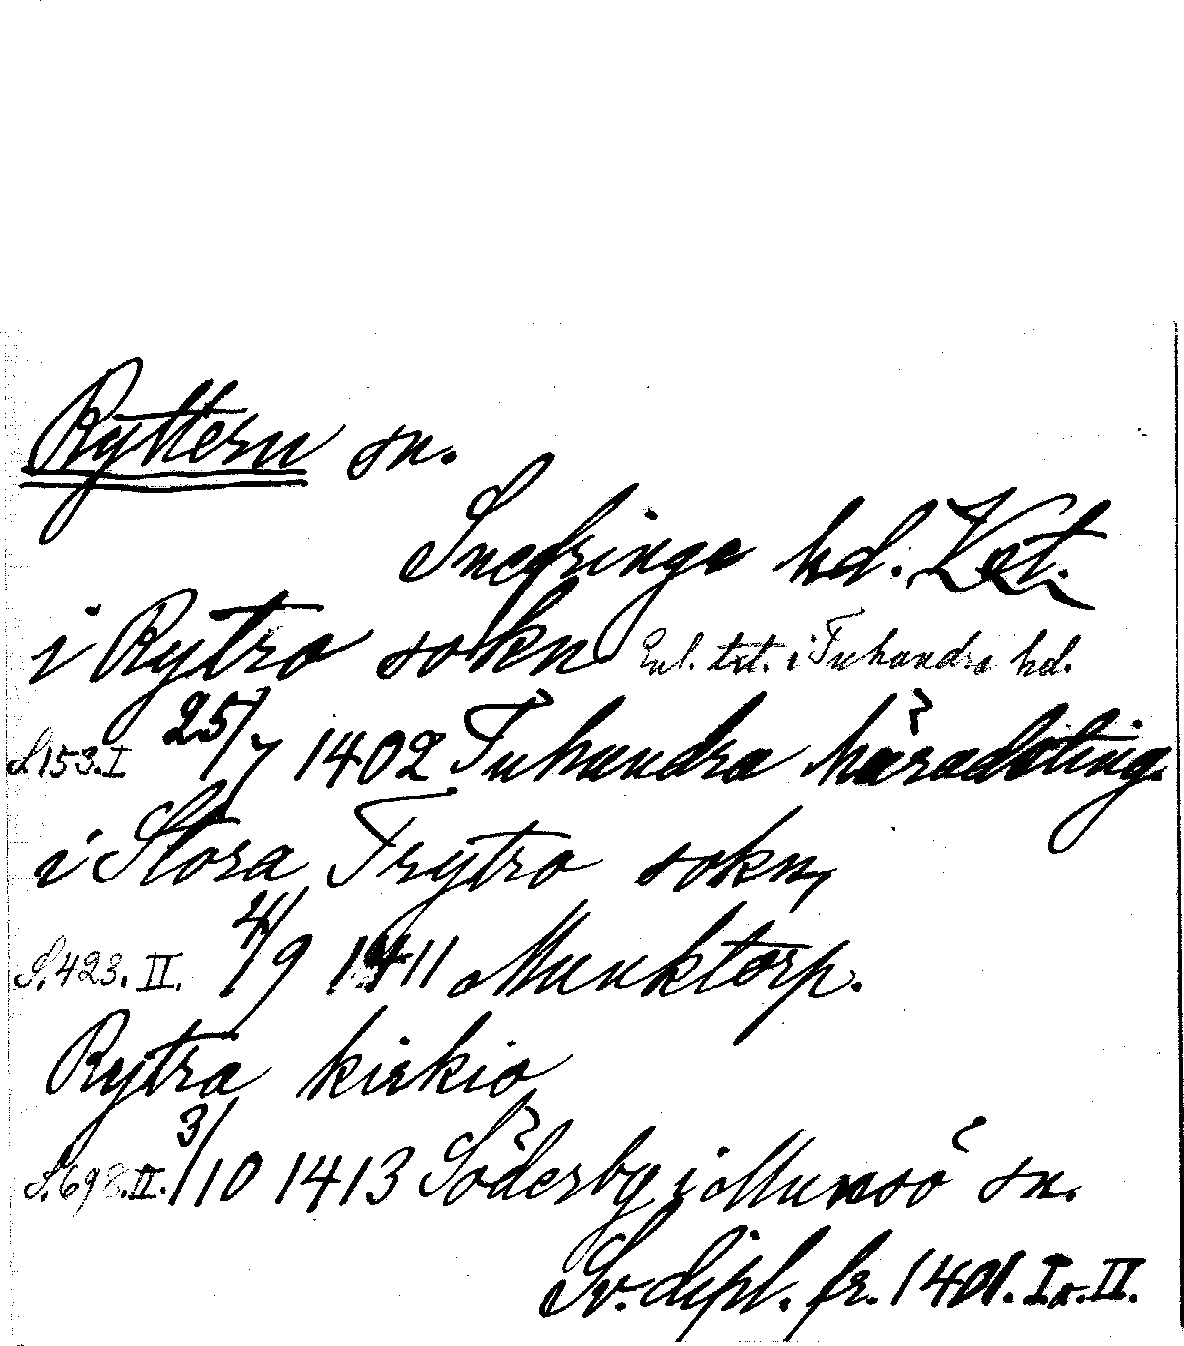 Ryttern sn.
Snefringe hd. Vst.
i Rytro sokn Enl. txt. i Tuhundra hd.
S.153.I 25/7 1402 Tuhundra häradsting.
i Stora Trytro sokn,
S.423.II. 4/9 1411 Munktorp.
Rytra kirkio
S.698.II. 3/10 1413 Söderby i Munsö sn.
Sv. dipl. fr. 1401. I o. II.